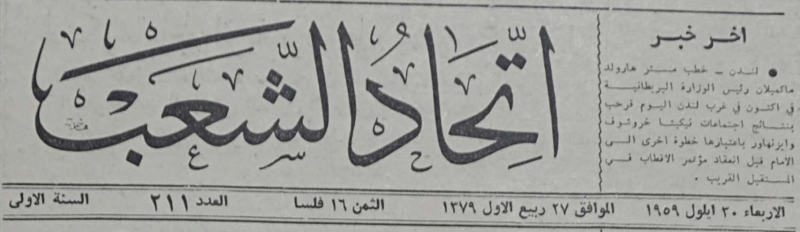 اتحاد الشعب
اخر خبر
● لندن - خطب مستر هارولد
ماكميلان رئيس الوزارة البريطانية
في اكتون في غرب لندن اليوم فرحب
بنتائج اجتماعات نيكيتا خروشوف
وايزنهاور باعتبارها خطوة اخرى الى
الامام قبل انعقاد مؤتمر الاقطاب في
المستقبل القريب .
الاربعاء ٣٠ ايلول ١٩٥٩ الموافق ٢٧ ربيع الاول ١٣٧٩ الثمن ١٦ فلسا العدد ٢١١ السنة الاولى